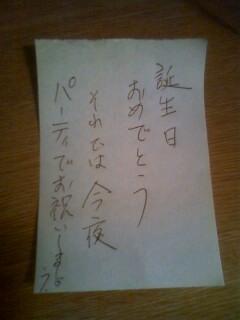 誕生日
おめでとう
それでは今夜
パーティでお祝いしましょう